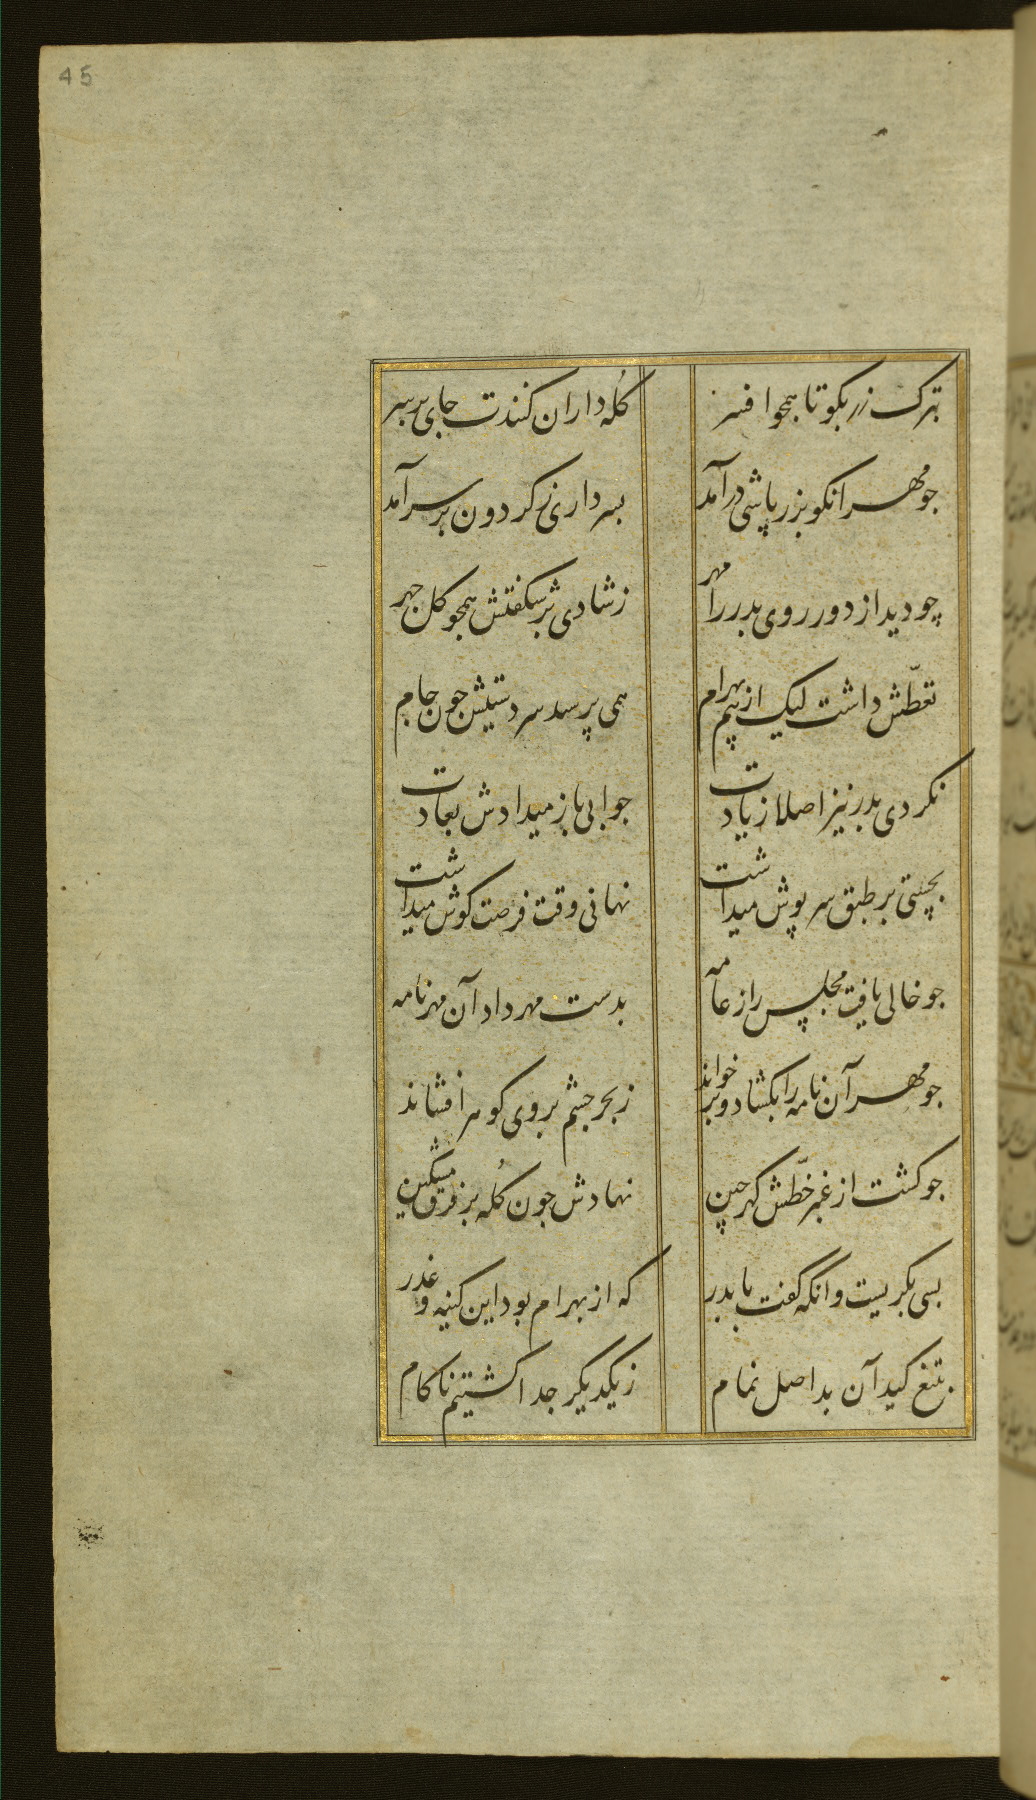 45
بترک زر بکو تا همجو افسر
کُله داران کنندت جای بر سر
جو مهر انکو بزر پاشی در آمد
بسرداری ز کردون بر سر آمد
چو دید از دور روی بدر را مهر
ز شادی بر شکفتش همجو کل جهر
تعطّش داشت لیک از بیم بهرام
همی پرسد سر دستیش جون جام
نکردی بدر نیز اصلا زیادت
جوابی باز میدادش بعادت
بجستی بر طبق سر پوش میداشت
نهانی وقت فرصت کوش میداشت
جو خالی یافت مجلس را ز عامه
بدست مهر داد آن مهر نامه
جو مهر آن نامه را بکشاد و بر خواند
ز بحر جشم بر وی کوهر افشاند
جو کشت از عنبر خطّش کهرجین
نهادش جون کُله بر فرق مشکین
بسی بکریست وانکه گفت با بدر
که از بهرام بود این کینه و غدر
بتیغ کید آن بد اصل نمام
ز یکدیگر جدا کشتیم ناکام